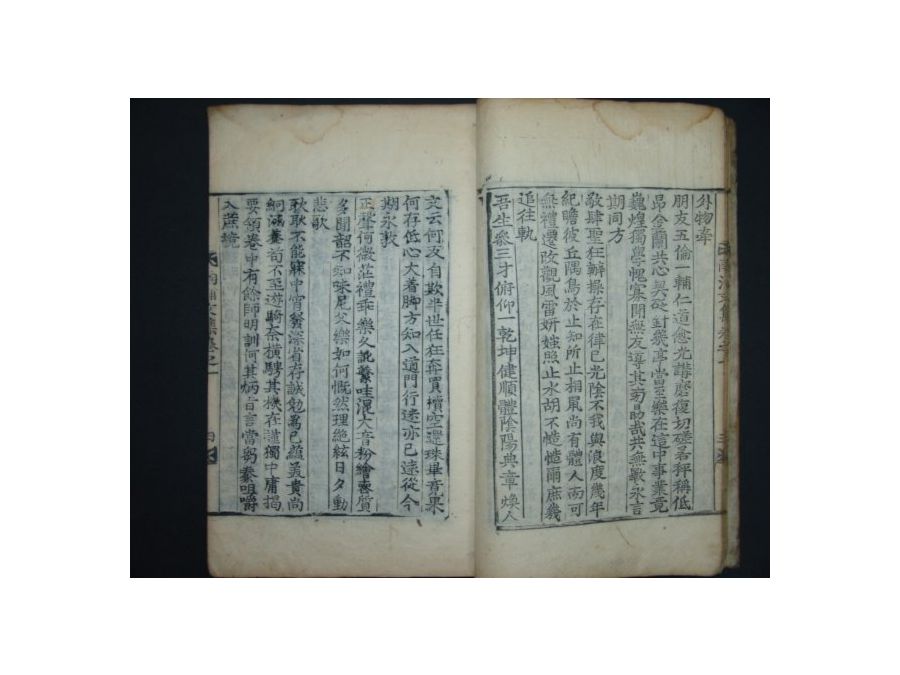 外物牽
朋友五倫一輔仁道愈光講磨復切磋名稱稱低
昂金蘭共心契 對幾亭當至樂在這中事業竟
巍煌獨學愧寡聞無友導其 勗哉共無斁永言
期同方
敬肆聖狂 操存在律己光陰不我與浪度幾年
紀瞻彼丘隅鳥於止知所止相鼠尚有體人而可
無禮遷改觀風雷妍媸照止水胡不慥慥爾庶幾
追往軌
吾生參三才俯仰一乾坤健順體陰陽典章煥人
文云何及自欺半世任狂奔買櫝空還珠畢竟果
何存低心大着脚方知入道門行迷亦已遠從今
期永敦
正聲何微茫禮乖樂久 哇混大音粉繪喪質
多聞韶不知味尼父樂如何慨然理絶絃日夕動
悲歌
耿耿不能寐中宵 深省存誠勉爲己 貴尚
絅涵養苟不至遊騎奈橫騁其機在謹獨中庸揭
要領卷中有餘師明訓何其炳古言當芻豢咀嚼
入蔗境